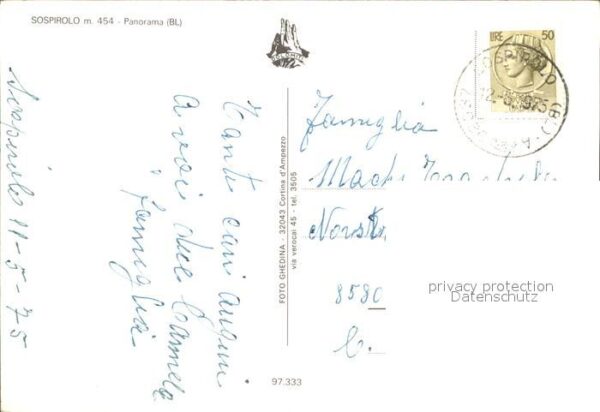 SOSPIROLO m. 454 - Panorama (BL)
GHEDINA
LIRE 50
SOSPIROLO (BL)
Sospirolo 11-5-75
Tanti cari auguri
a voi due Carmela
famiglia
FOTO GHEDINA - 32043 Cortina d'Ampezzo
via verocai 45 - tel. 3505
Famiglia
8580
privacy protection
Datenschutz
97.333